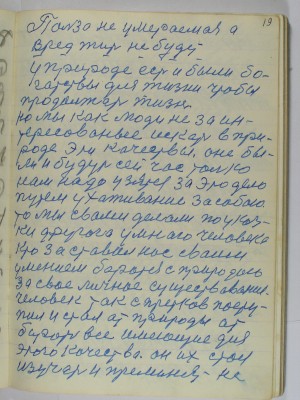 19
Польза не умераемая а
вред жир не будут
У природе есть и были бо-
гатствы для жизни чтобы
продолжать жизнь
но мы как люди не заин-
тересованые искать в при-
роде эти качествы. оне бы-
ли и будут сейчас только
нам надо узятся за это дело
путем ухаживание за собою
то мы своим делом по указ-
ки другога умнаго человека
кто заставил нас своим
умением бароться с природою
за свое личное существование.
человек так с предков посту-
пил и стал от природы от-
бирать все имеющие для
этого качества. он их стал
изучать и применять не